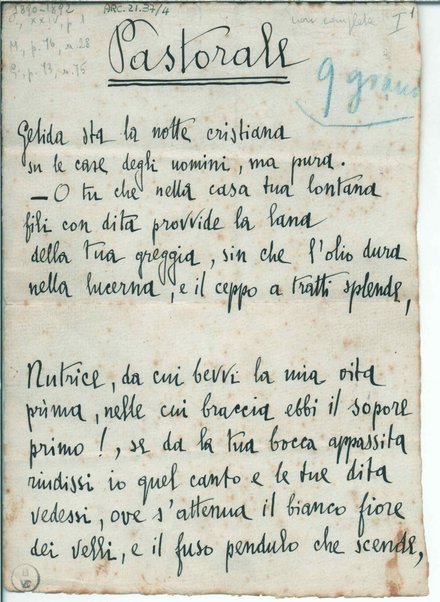 1890-1892
ARC.21.37/4
non completa
I
XXIV, p. 1
M., p. 76, n. 28
p. 73, n. 75
Pastorale
9
Gelida sta la notte cristiana
su le case degli uomini, ma pura.
— O tu che nella casa tua lontana
fili con dita provvide la lana
della tua greggia, sin che l'olio dura
nella lucerna, e il ceppo a tratti splende,
Nutrice, da cui bevvi la mia vita
prima, nelle cui braccia ebbi il sopore
primo!, se da la tua bocca appassita
riudissi io quel canto e le tue dita
vedessi, ove s'attenua il bianco fiore
dei velli, e il fuso pendulo che scende,